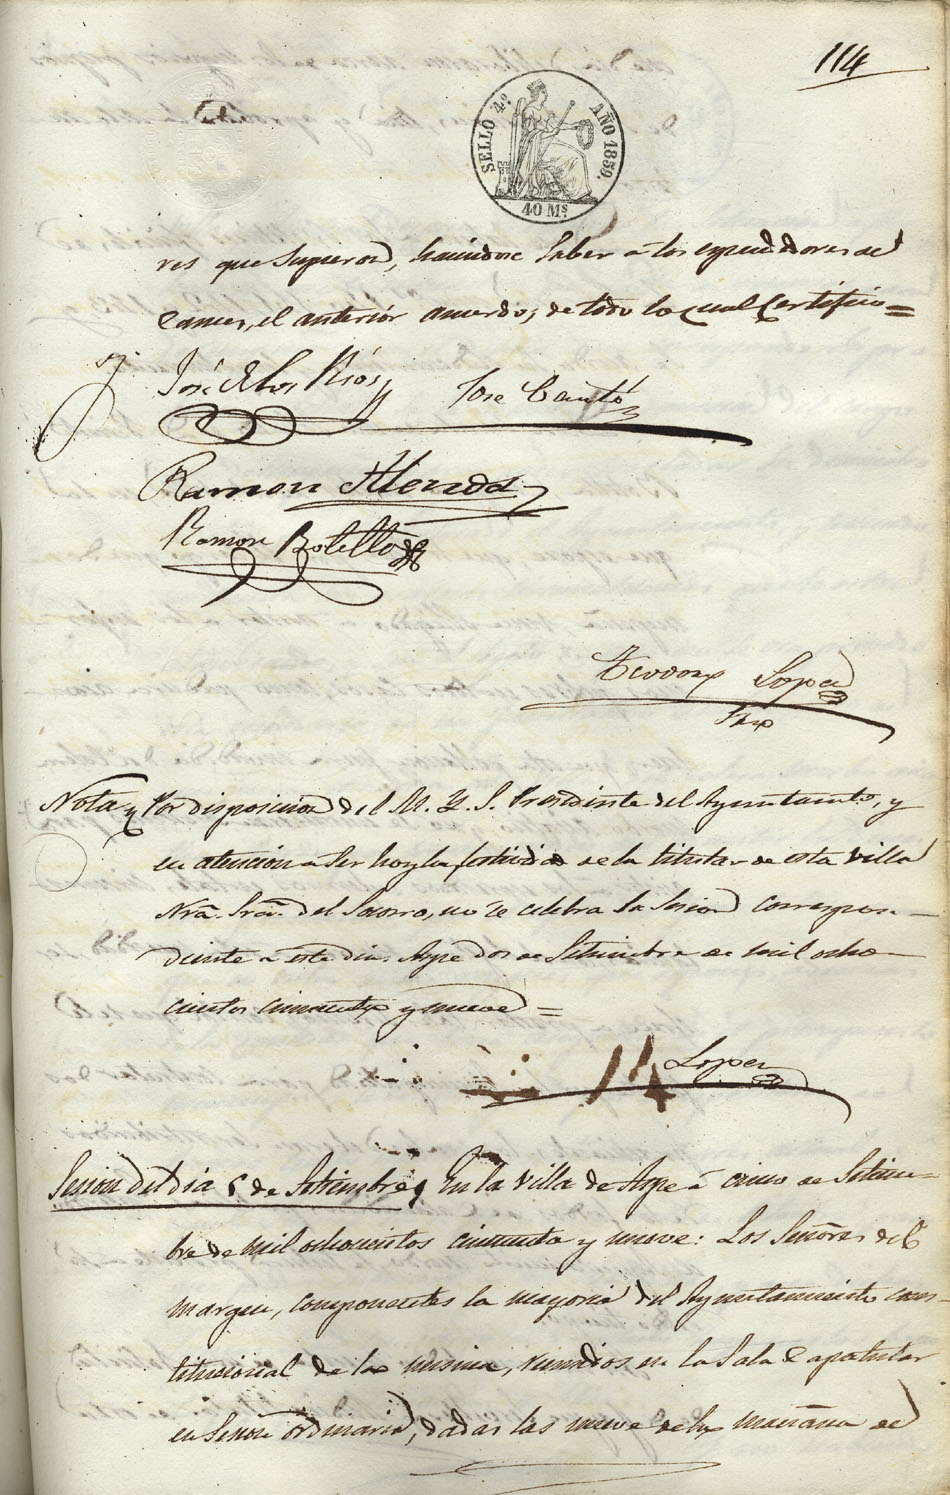 114
SELLO 4.º AÑO 1859.
40 Mˢ.
res que supieron, haciendose saber a los expendedores de
carnes, el anterior acuerdo; de todo lo cual Certifico =
José de los Rios
Jose Cantó
Ramon Alenda
Ramon Botella
Teodoro Lopez
Srio
Nota y Por disposicion del M. Y. S. Presidente del Ayuntamto, y
en atencion a ser hoy la festividad de la titular de esta villa
Nra. Sra. del Socorro, no se celebra la sesion correspon-
diente a este dia. Aspe dos de Setiembre de mil ocho-
cientos cincuenta y nueve =
Lopez
114
Sesion del dia 5 de Setiembre, En la villa de Aspe á cinco de Setiem-
bre de mil ochocientos cincuenta y nueve: Los Señores del
margen, componentes la mayoria del Ayuntamiento cons-
titucional de la misma, reunidos en la Sala Capitular
en Sesion ordinaria, dadas las nueve de la mañana de